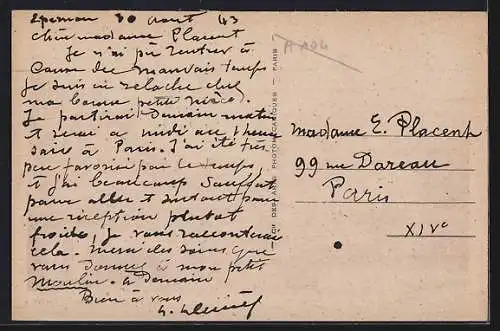 Epernon 30 Aout 43
Chère madame Placent
Je n'ai pû rentrer à
Cause du mauvais temps
Je suis en relache chez
ma bonne petite nièce.
Je partirai Demain matin
et serai a midi ou 1 heure
à Paris. J'ai été très
peu favorisé par le temps
et j'ai beaucoup Souffert
pour aller et surtout pour
une réception plutot
froide, je vous raconterai
cela. merci des soins que
vous Donnez à mon petit
Moulin. à Demain
Bien à vous
A 104
PHOTOMÉCANIQUES - PARIS
Madame E. Placent
99 rue Dareau
Paris
XIVe